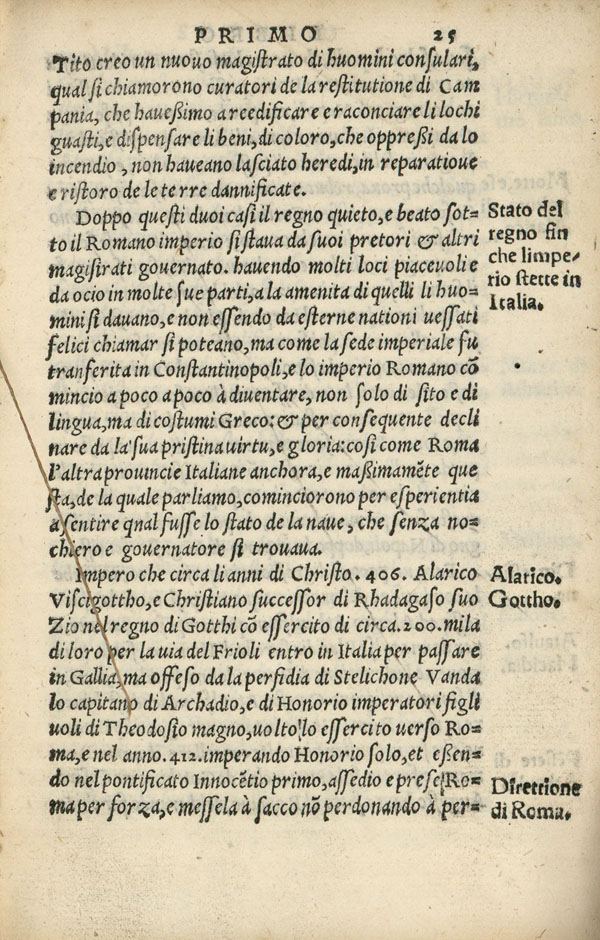 PRIMO 25
Tito creo un nuovo magistrato di huomini consulari,
qual si chiamorono curatori de la restitutione di Cam
pania, che haveßimo a reedificare e raconciare li lochi
guasti, e dispensare li beni, di coloro, che oppreßi da lo
incendio, non haveano lasciato heredi, in reparatioue
e ristoro de le terre dannificate.
Doppo questi duoi casi il regno quieto, e beato sot=
to il Romano imperio si stava da suoi pretori & altri
magisirati governato. havendo molti loci piacevoli e
da ocio in molte sue parti, a la amenita di quelli li huo=
mini si davano, e non essendo da esterne nationi vessati
felici chiamar si poteano, ma come la sede imperiale fu
tranferita in Constantinopoli, e lo imperio Romano cõ
mincio a poco a poco à diventare, non solo di sito e di
lingua, ma di costumi Greco: & per consequente decli
nare da la sua pristina virtu, e gloria: così come Roma
l'altra provincie Italiane anchora, e maßimamẽte que
sta, de la quale parliamo, cominciorono per esperientia
a sentire qnal fusse lo stato de la nave, che senza no=
chiero e governatore si trovava.
Impero che circa li anni di Christo. 406. Alarico
Viscigottho, e Christiano successor di Rhadagaso suo
Zio nel regno di Gotthi cõ essercito di circa. 200. mila
di loro per la via del Frioli entro in Italia per passare
in Gallia, ma offeso da la perfidia di Stelichone Vanda
lo capitano di Archadio, e di Honorio imperatori figli
uoli di Theodosio magno, volto lo essercito verso Ro=
ma, e nel anno. 412. imperando Honorio solo, et eßen=
do nel pontificato Innocẽtio primo, assedio e prese Ro=
ma per forza, e messela à sacco nõ perdonando à per=
Stato del
regno fin
che limpe/
rio stette in
Italia.
Alarico.
Gottho.
Direttione
di Roma.